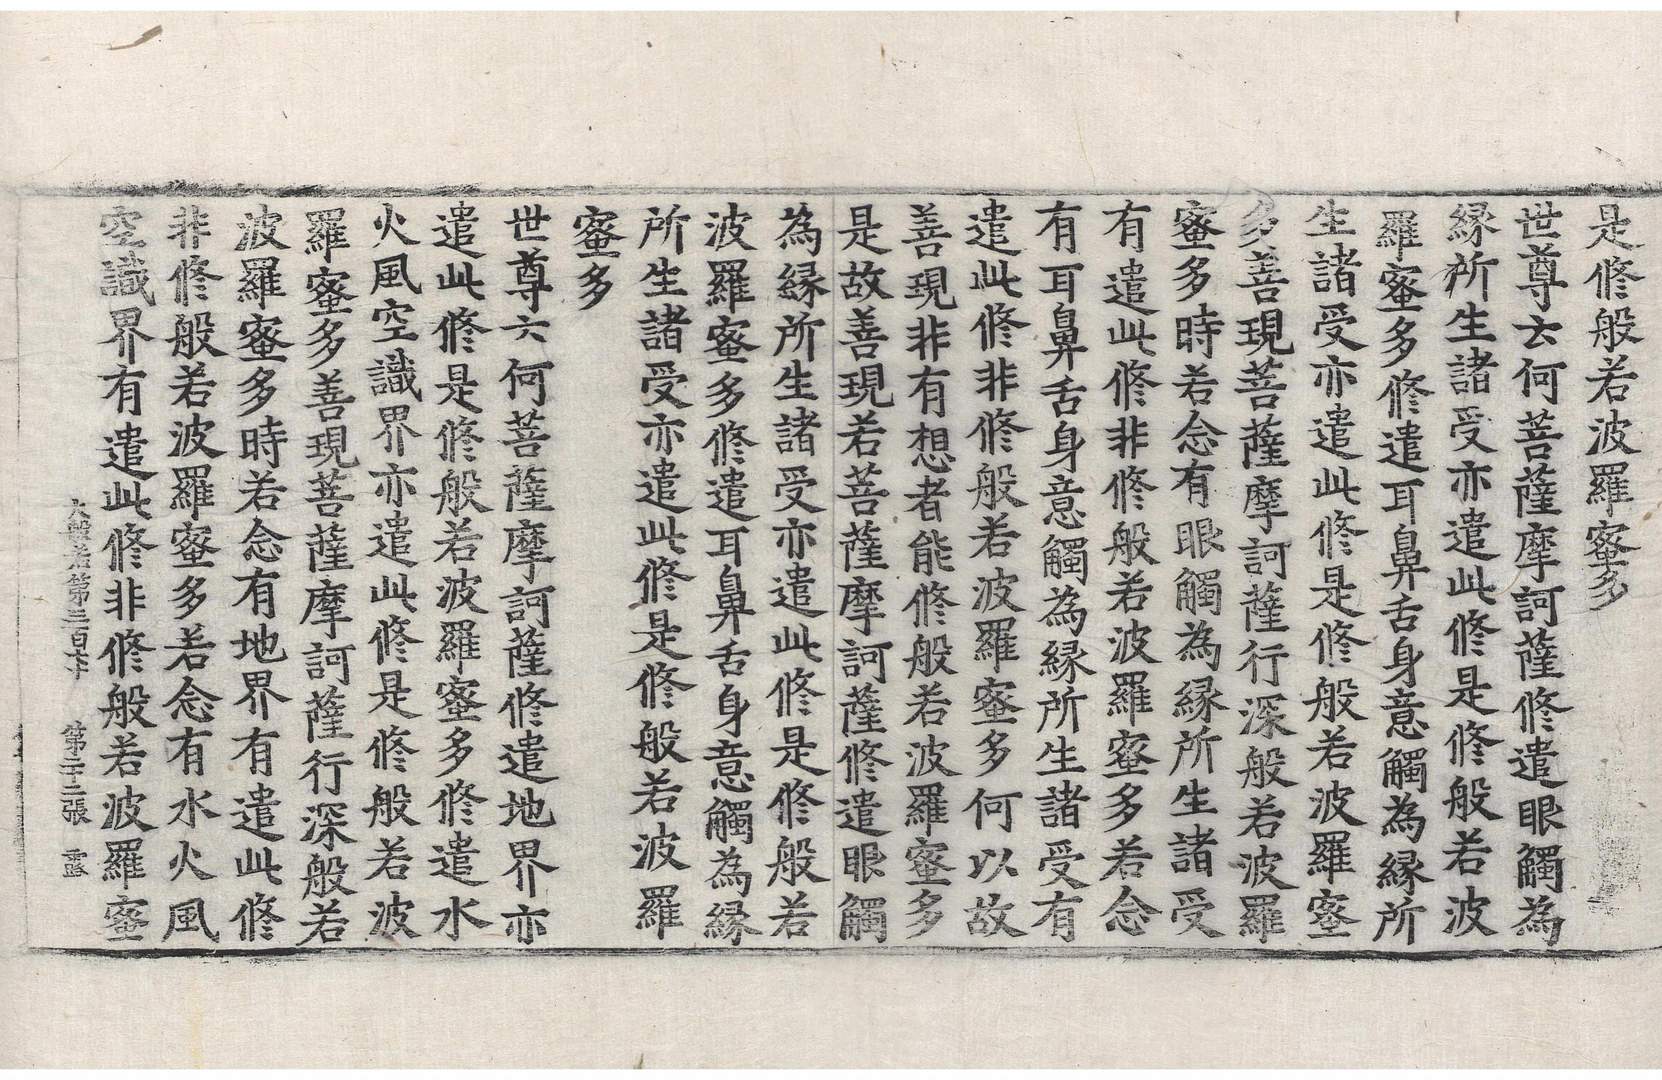 是修般若波羅蜜多
世尊云何菩薩摩訶薩修遣眼觸為
緣所生諸受亦遣此修是修般若波
羅蜜多修遣耳鼻舌身意觸為緣所
生諸受亦遣此修是修般若波羅蜜
多善現菩薩摩訶薩行深般若波羅
蜜多時若念有眼觸為緣所生諸受
有遣此修非修般若波羅蜜多若念
有耳鼻舌身意觸為緣所生諸受有
遣此修非修般若波羅蜜多何以故
善現非有想者能修般若波羅蜜多
是故善現若菩薩摩訶薩修遣眼觸
為緣所生諸受亦遣此修是修般若
波羅蜜多修遣耳鼻舌身意觸為緣
所生諸受亦遣此修是修般若波羅
蜜多
世尊云何菩薩摩訶薩修遣地界亦
遣此修是修般若波羅蜜多修遣水
火風空識界亦遣此修是修般若波
羅蜜多善現菩薩摩訶薩行深般若
波羅蜜多時若念有地界有遣此修
非修般若波羅蜜多若念有水火風
空識界有遣此修非修般若波羅蜜
大般若第三百 第二十三張